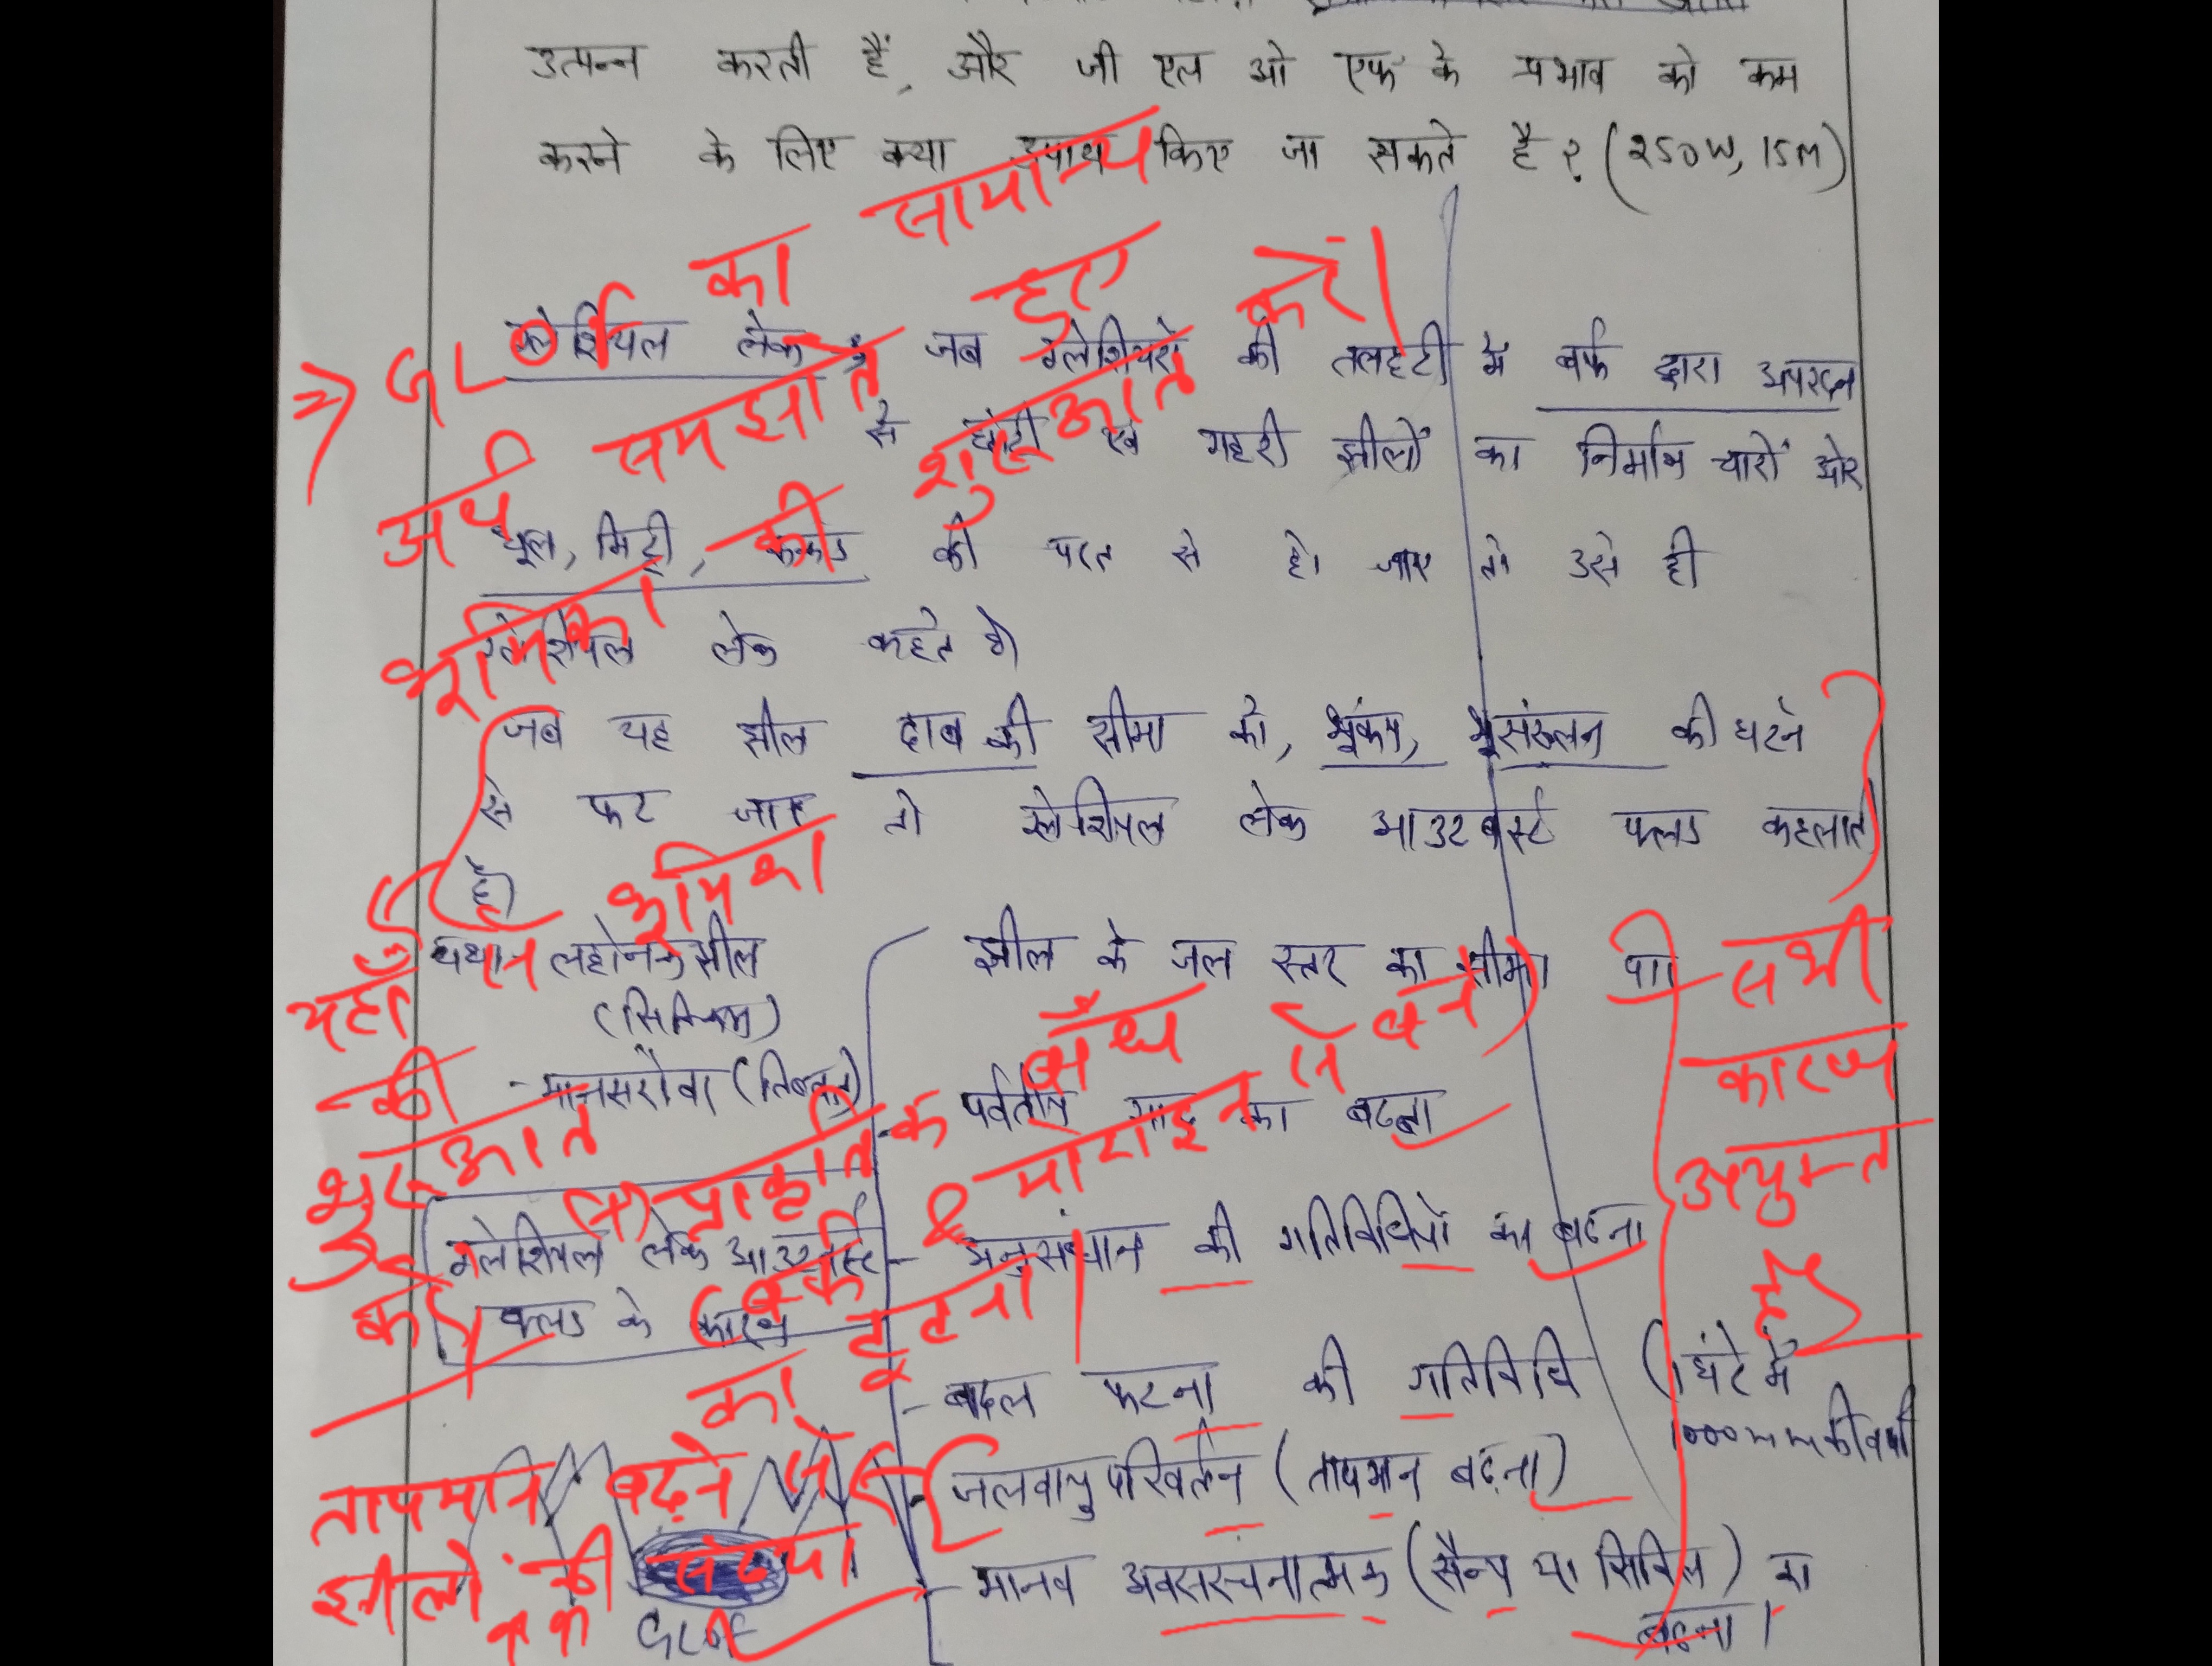 उत्पन्न करती हैं, और जी एल ओ एफ के प्रभाव को कम
करने के लिए क्या उपाय किए जा सकते है? (250W, 15M)
⇒ GLOF का सामान्य
अर्थ समझाते हुए
भूमिका की शुरूआत करें।
ग्लेशियल लेक जब ग्लेशियरो की तलहटी में बर्फ द्वारा अपरदन
से छोटी एवं गहरी झीलों का निर्माण चारों ओर
धूल, मिट्टी, कंकड की परत से हो जाए तो उसे ही
ग्लेशियल लेक कहते है।
जब यह झील दाब की सीमा को, भूकंप, भूसंख्लन की घटने
से फट जाए तो ग्लेशियल लेक आउटबर्स्ट फ्लड कहलाते
है।
यहाँ से भूमिका
की शुरूआत करें।
ल्होनक झील
(सिक्किम)
- मानसरोवर (तिब्बत)
ग्लेशियल लेक आउटबर्स्ट
फ्लड के कारण
झील के जल स्तर का सीमा
पर्वतीय गाद का बढना
- अनुसंधान की गतिविधियों का बढना
- बादल फटना की गतिविधि (1 घंटे में
1000mm की वर्षा
- जलवायु परिवर्तन (तापमान बढ़ना)
- मानव अवसंरचनात्मक (सैन्य या सिविल) का
बढना।
प्राकृतिक बाँध
(बर्फ & मोराइन से बने)
का टूटना।
सभी
कारण
अयुक्त
हैं
तापमान बढ़ने से
झीलों की संख्या
GLOF